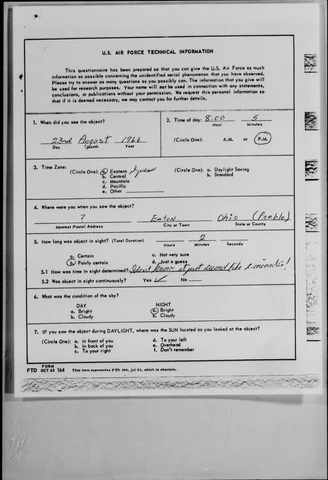 U.S. AIR FORCE TECHNICAL INFORMATION
This questionnaire has been prepared so that you can give the U.S. Air Force as much
information as possible concerning the unidentified aerial phenomenon that you have observed.
Please try to answer as many questions as you possibly can. The information that you give will
be used for research purposes. Your name will not be used in connection with any statements,
conclusions, or publications without your permission. We request this personal information so
that if it is deemed necessary, we may contact you for further details.
1. When did you see the object?
23rd August 1966
Day Month Year
2. Time of day: 8:00 5
Hour Minutes
(Circle One): A.M. or P.M.
3. Time Zone:
(Circle One): a. Eastern
b. Central
c. Mountain
d. Pacific
e. Other
(Circle One): a. Daylight Saving
b. Standard
4. Where were you when you saw the object?
? Eaton Ohio (Preble)
Nearest Postal Address City or Town State or County
5. How long was object in sight? (Total Duration) 2
Hours Minutes Seconds
a. Certain c. Not very sure
b. Fairly certain d. Just a guess
5.1 How was time in sight determined? I don't know it just seemed like 2 minutes!
5.2 Was object in sight continuously? Yes ✓ No
6. What was the condition of the sky?
DAY NIGHT
a. Bright a. Bright
b. Cloudy b. Cloudy
7. IF you saw the object during DAYLIGHT, where was the SUN located as you looked at the object?
(Circle One): a. In front of you d. To your left
b. In back of you e. Overhead
c. To your right f. Don't remember
FORM
FTD OCT 62 164 This form supersedes FTD 164, Jul 61, which is obsolete.